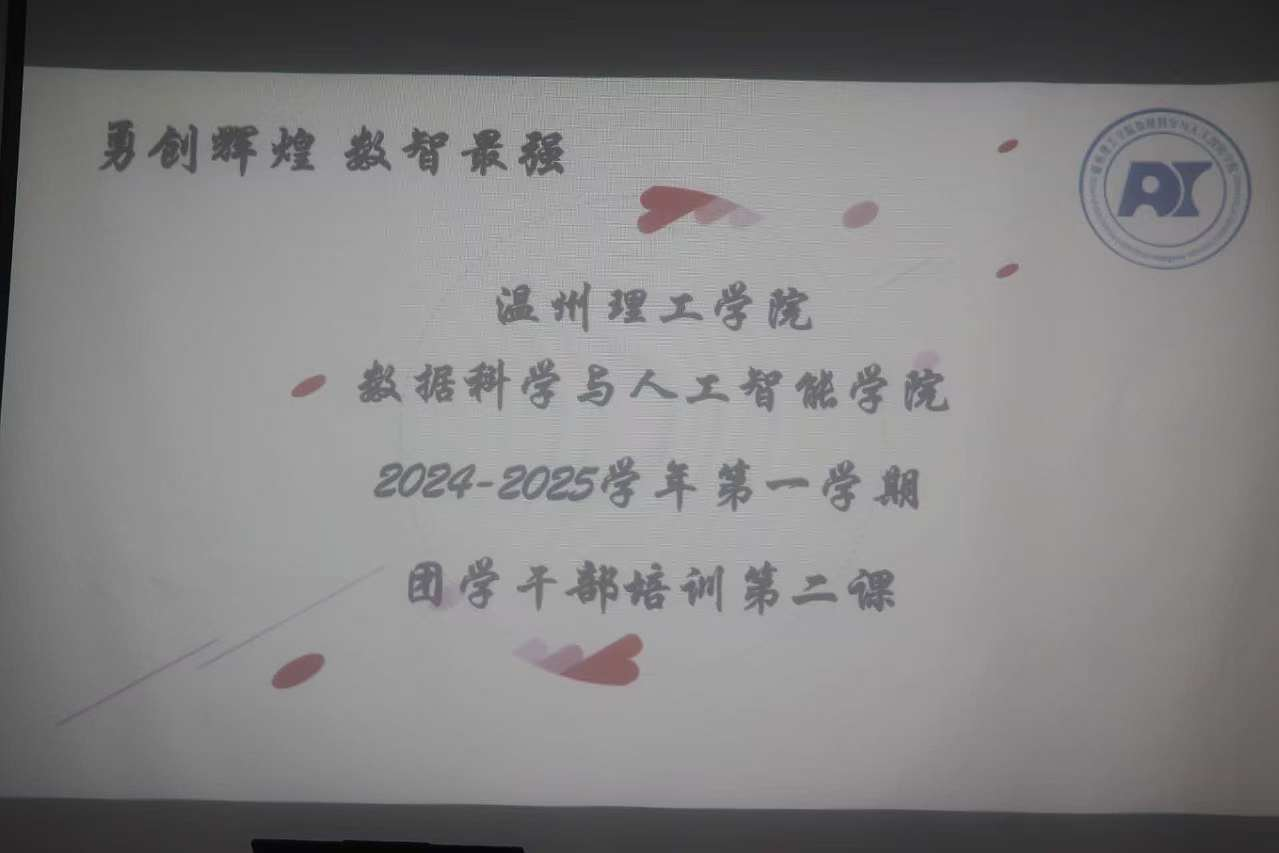 勇创辉煌 数智最强
温州理工学院
数据科学与人工智能学院
2024-2025学年第一学期
团学干部培训第二课